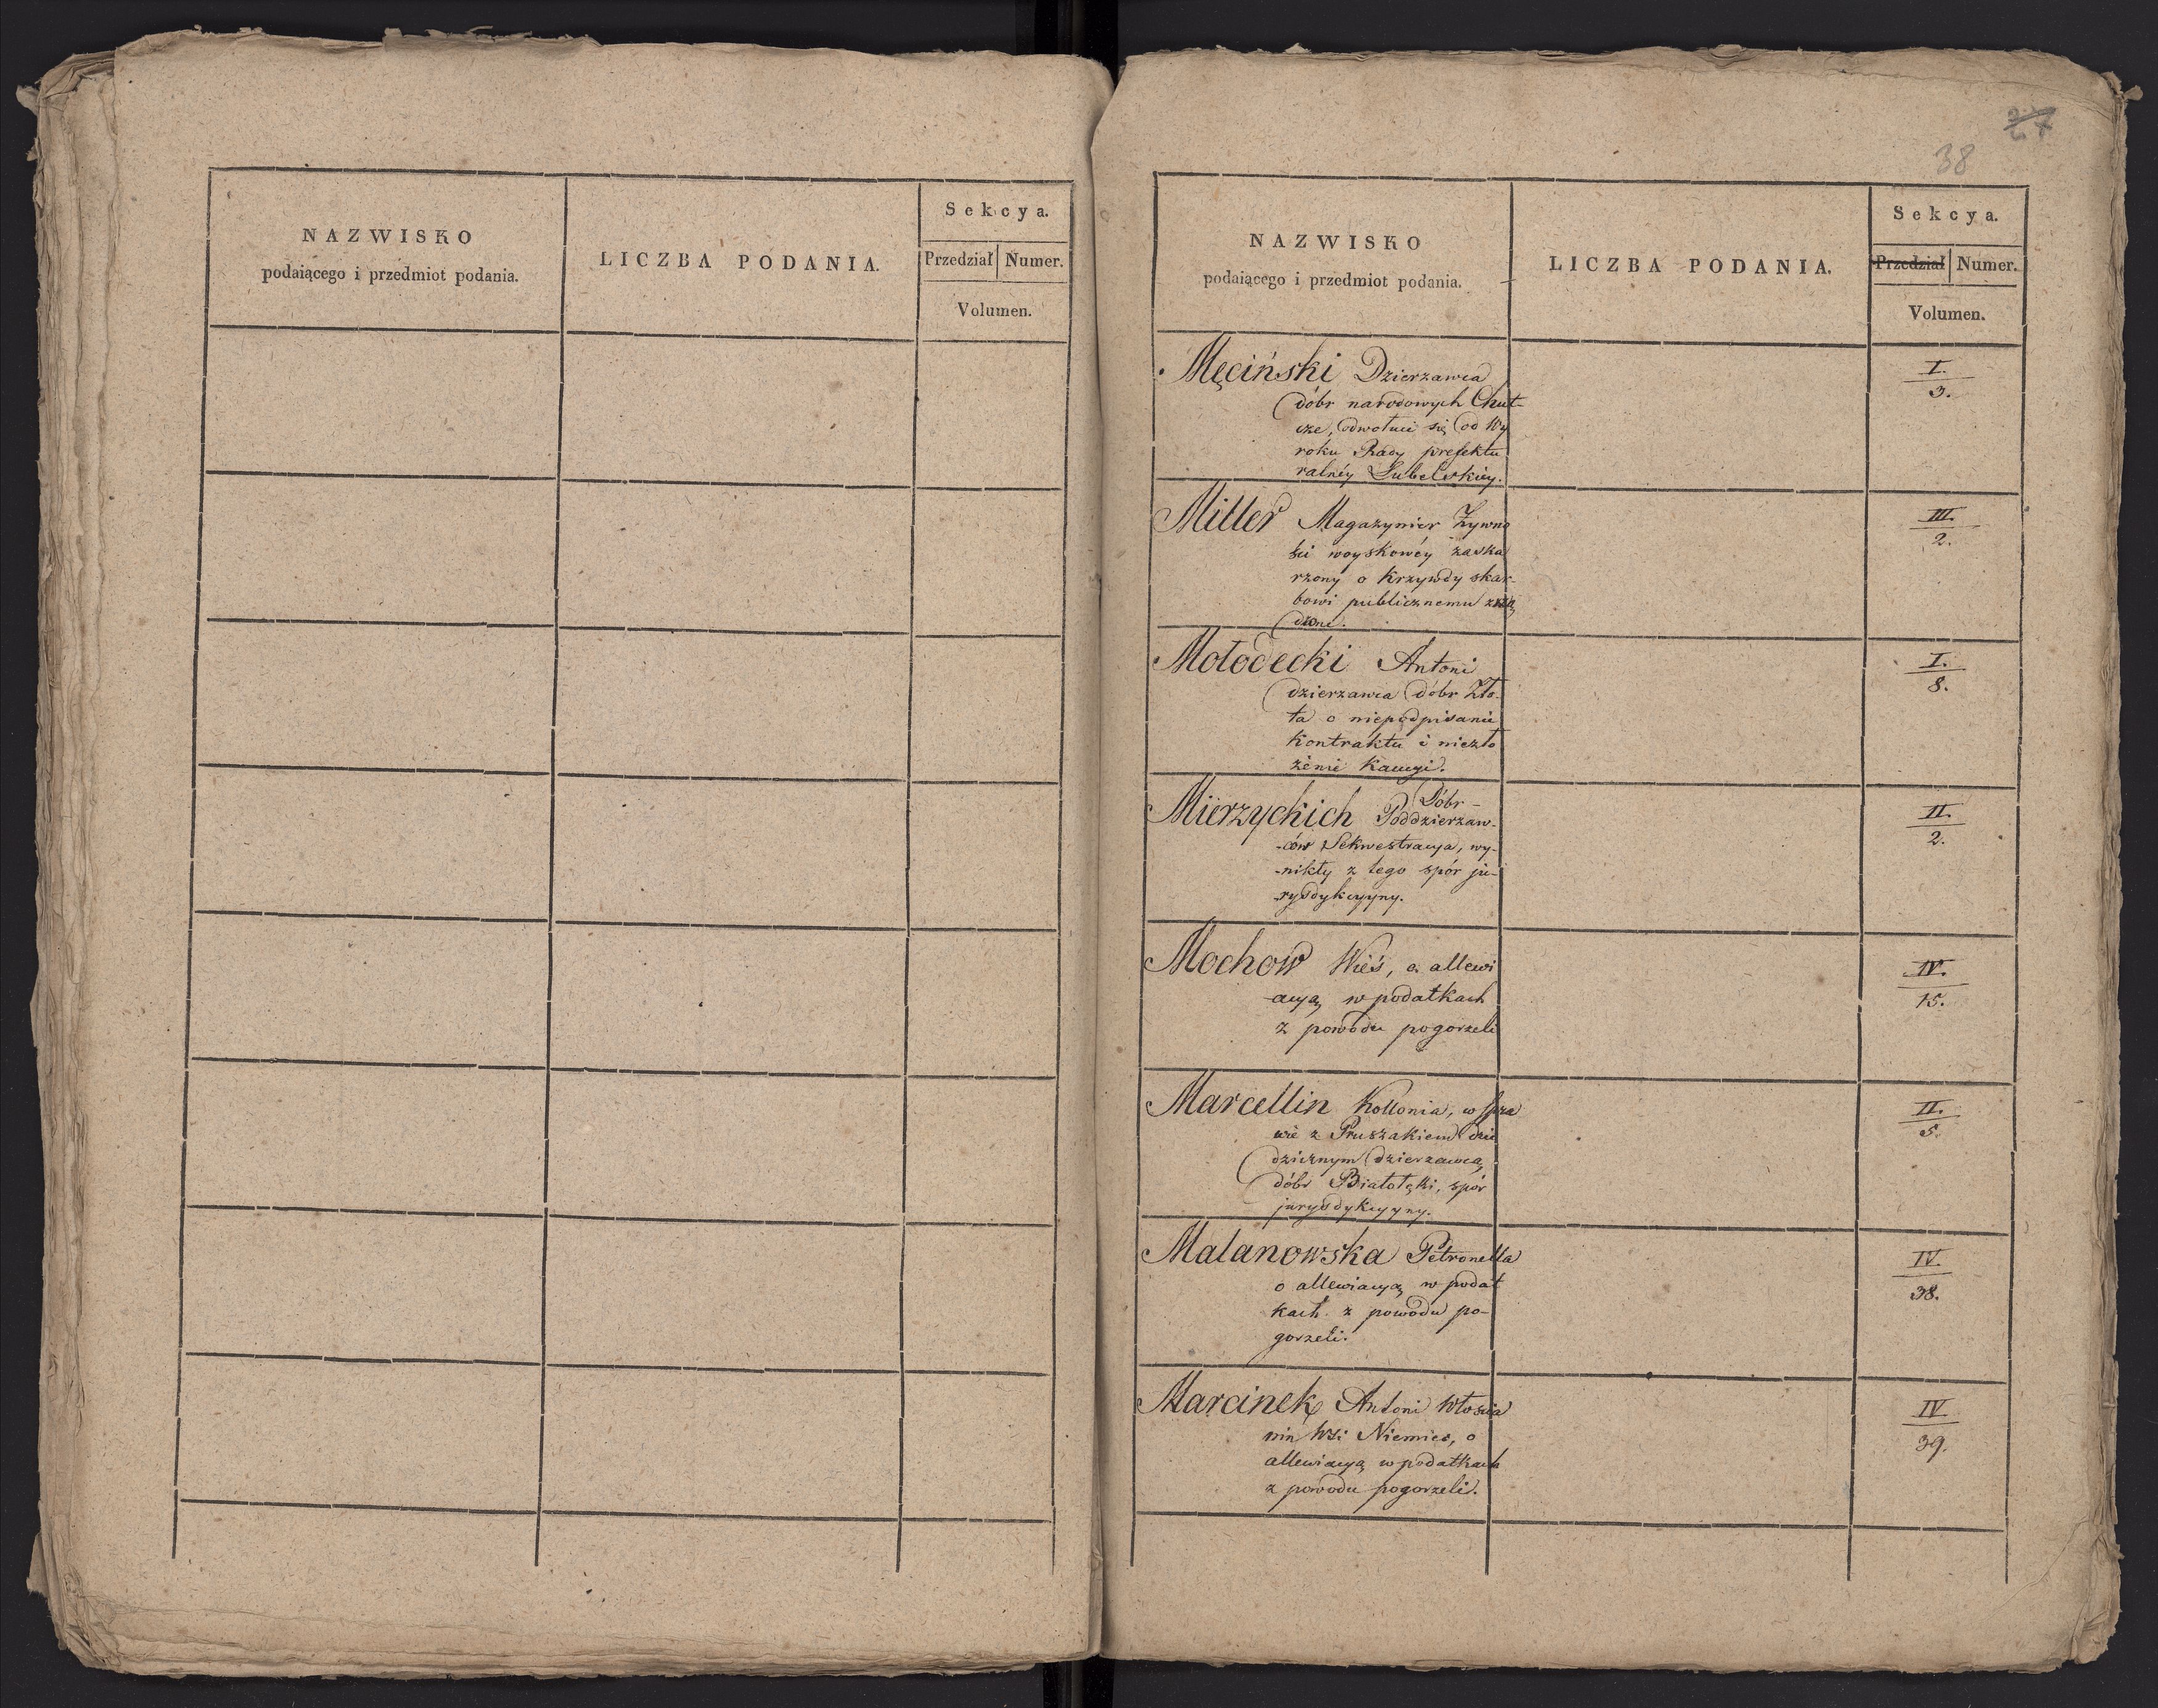 NAZWISKO
podaiącego i przedmiot podania.
LICZBA PODANIA.
Sekcya.
Przedział Numer.
Volumen.
27
38
NAZWISKO
podaiącego i przedmiot podania.
LICZBA PODANIA.
Sekcya.
Przedział Numer.
Volumen.
Męciński Dzierzawca
dóbr narodowych Chut-
cze, odwołuie się od Wy
roku Rady prefektu
ralnéy Lubelskiey.
I.
3.
Miller Magazynier Żywno
ści woyskowéy zaska
rzony o krzywdy skar-
bowi publicznemu zrzą
dzone.
III.
2.
Mołodecki Antoni
dzierzawca dóbr Zło-
ta o niepodpisanie
kontraktu i niezło
żenie Kaucyi.
I.
8.
Mierzyckich Dóbr-
Poddzierzaw-
-ców Sekwestracya, wy-
-nikły z tego spór ju-
-rysdykcyyny.
II.
2.
Mochow Wieś, o allewi
acyą w podatkach
z powodu pogorzeli
IV.
15.
Marcellin Kollonia, w spra
wie z Pruszakiem dzie
dzicznym dzierzawcą
dóbr Białołęki, spór
jurysdykcyyny.
II.
5.
Malanowska Petronella
o allewiacyą w podat
kach z powodu po-
gorzeli.
IV.
38.
Marcinek Antoni Włoscia
nin Wsi Niemice, o
allewiacyą w podatkach
z powodu pogorzeli.
IV
39.